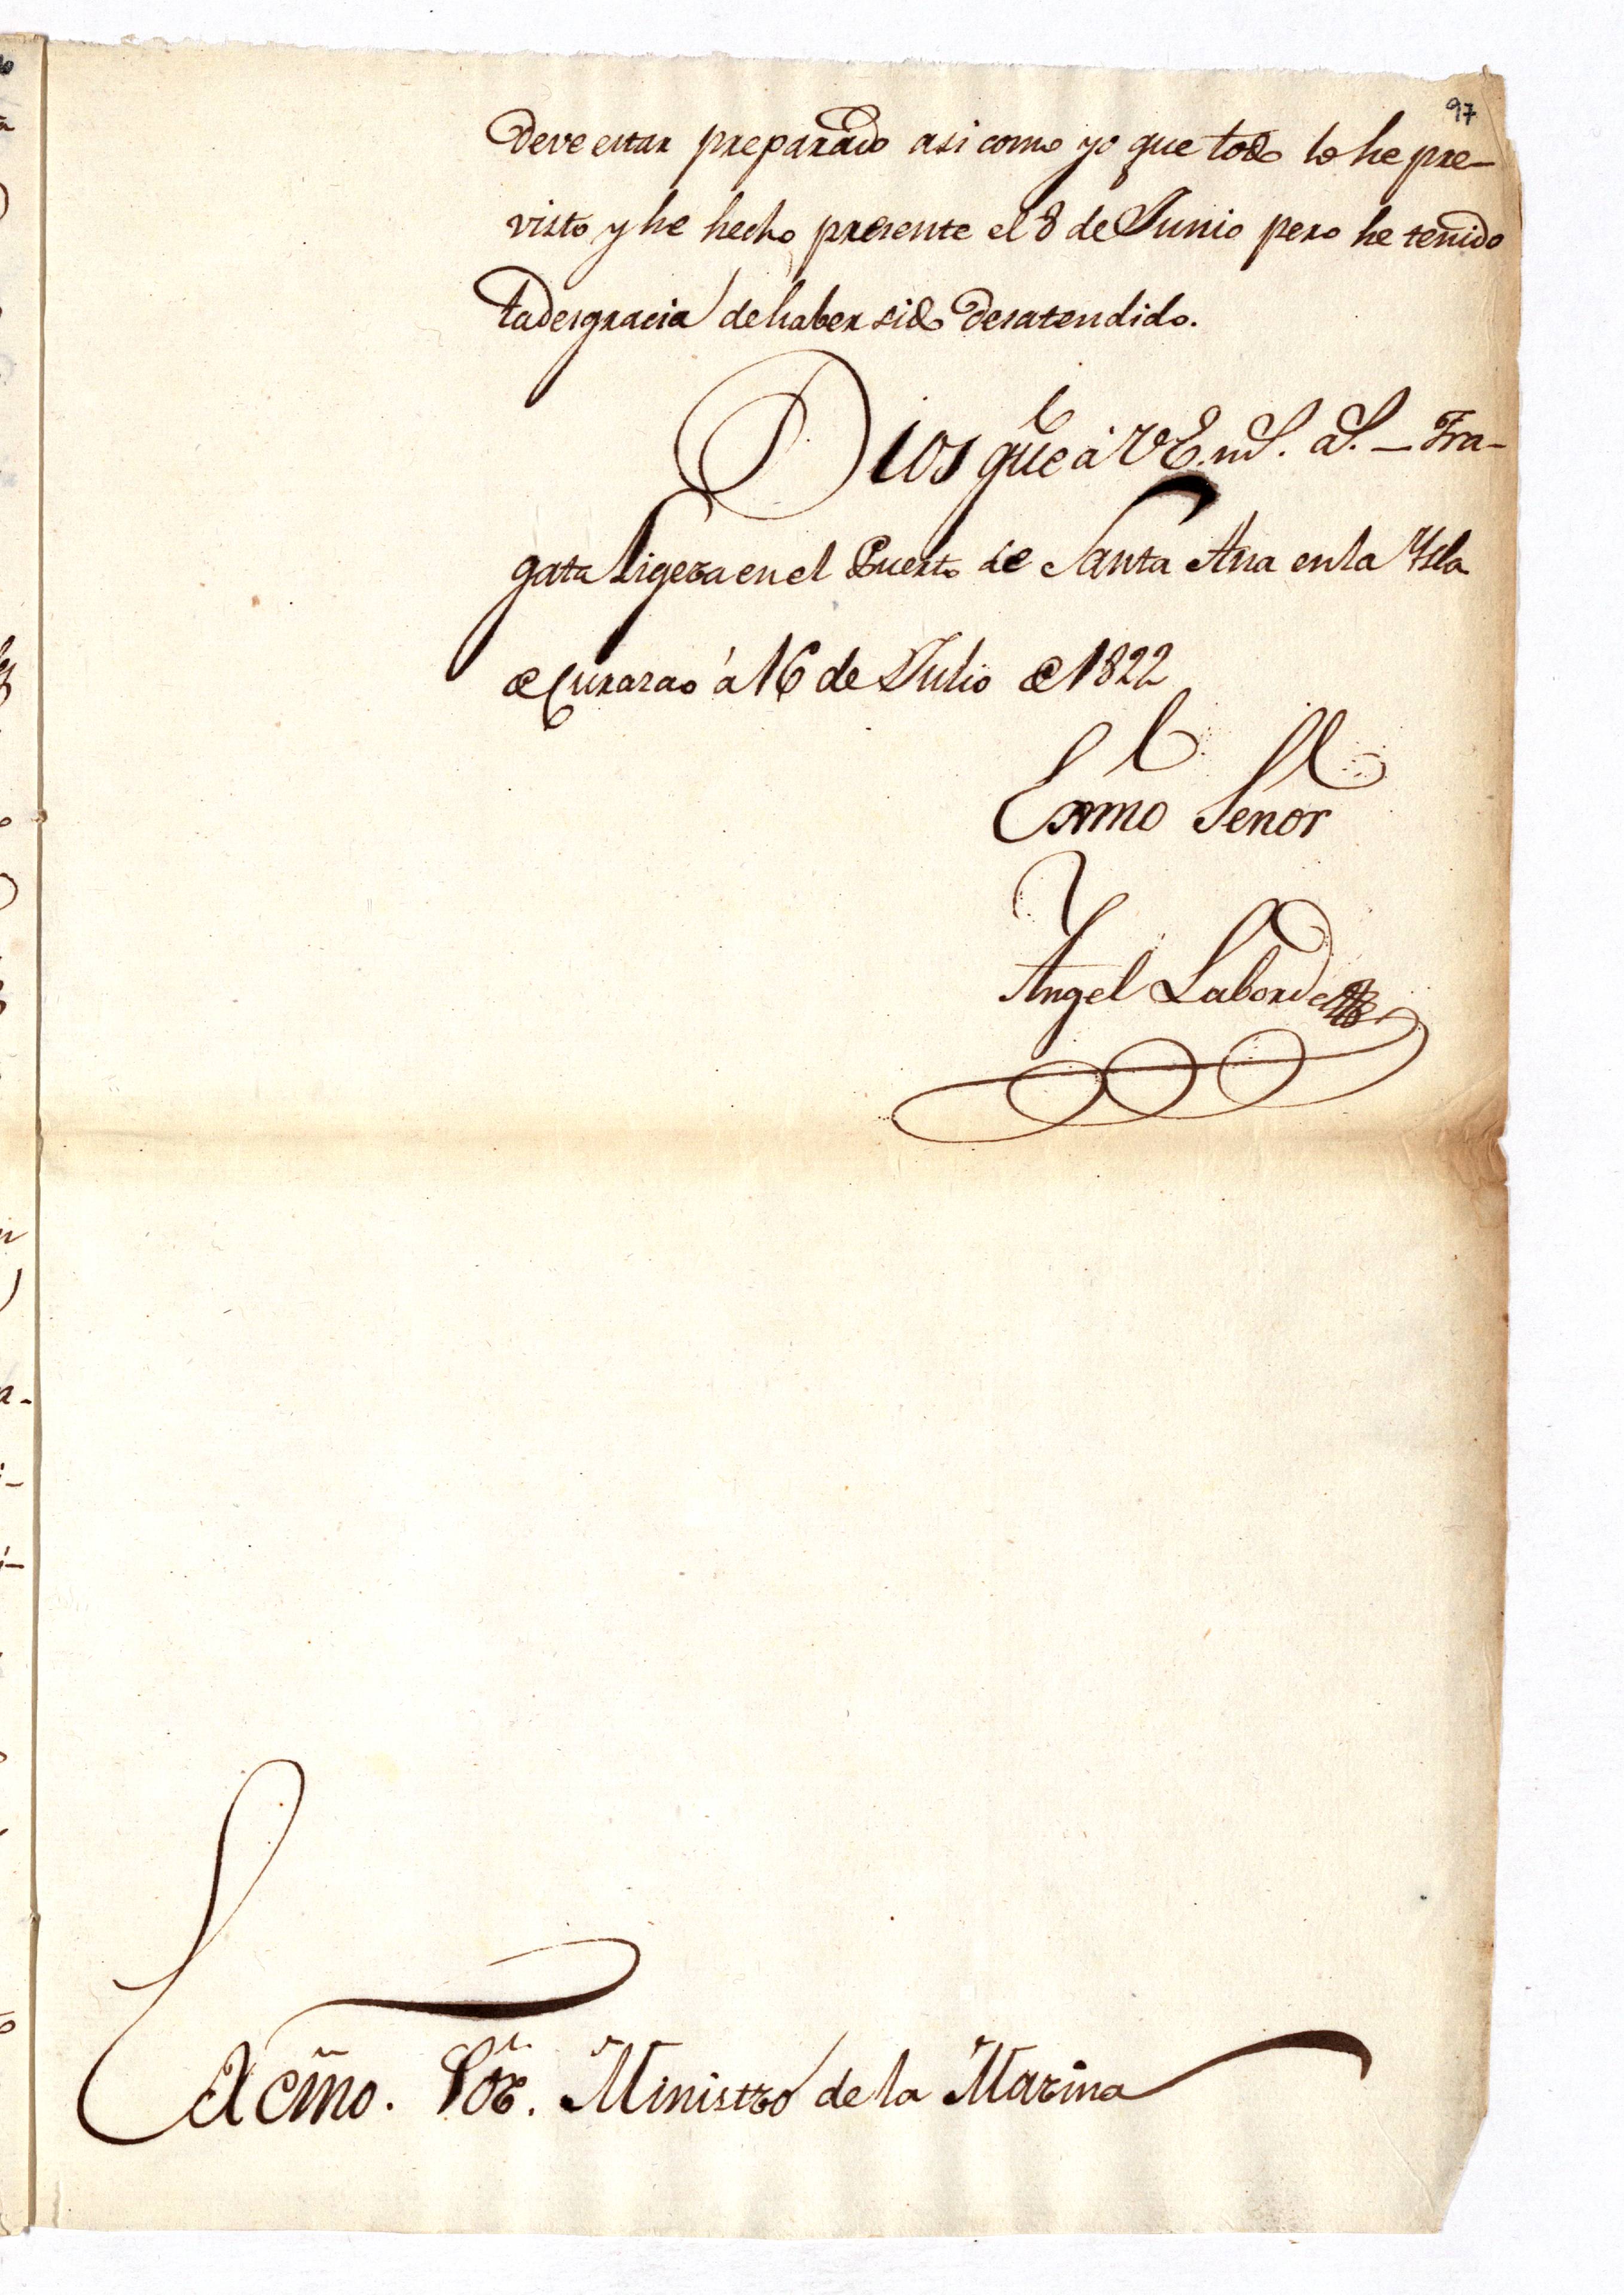 97
deve estar preparado asi como yo que todo lo he pre-
visto y he hecho presente el 8 de Junio pero he tenido
la desgracia de haber sido desatendido.
Dios güe à VE. m.s. a.s. – Fra-
gata Ligera en el Puerto de Santa Ana en la Ysla
de Curazao à 16 de Julio de 1822
Exmo Señor
Angel Laborde
Excm̃o. Sõr. Ministro de la Marina